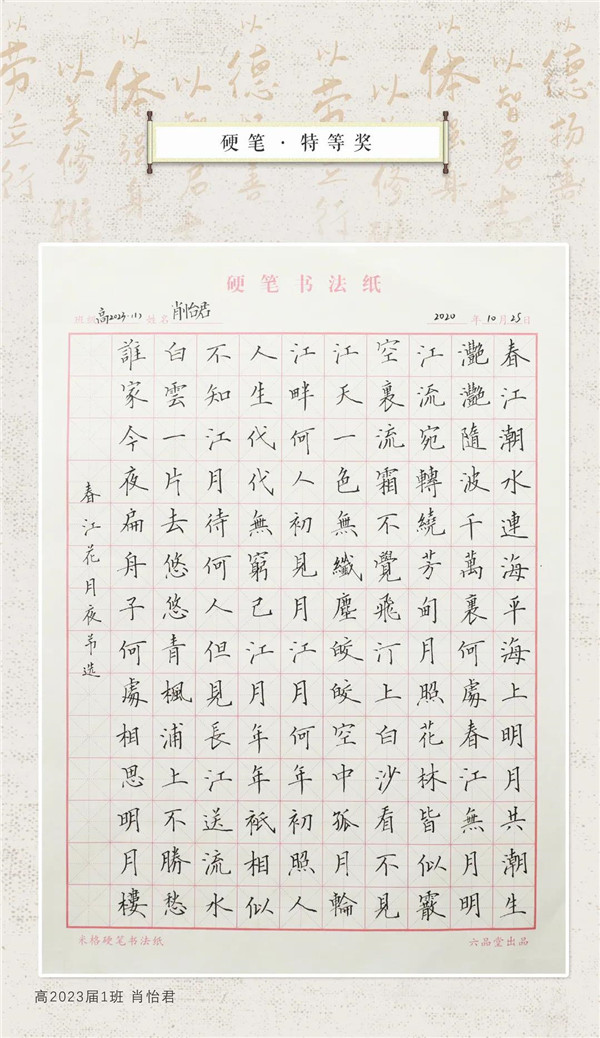 以德扬善
以智启志
以体强身
以美修雅
以劳立行
以德扬善
以智启志
以体强身
以美修雅
以劳立行
硬笔·特等奖
硬笔书法纸
班级 高2023.(1) 姓名 肖怡君 2020年10月25日
春江潮水連海平海上明月共潮生
灧灧隨波千萬裏何處春江無月明
江流宛轉繞芳甸月照花林皆似霰
空裏流霜不覺飛汀上白沙看不見
江天一色無纖塵皎皎空中孤月輪
江畔何人初見月江月何年初照人
人生代代無窮已江月年年祇相似
不知江月待何人但見長江送流水
白雲一片去悠悠青楓浦上不勝愁
誰家今夜扁舟子何處相思明月樓
春江花月夜节选
米格硬笔书法纸
六品堂出品
高2023届1班 肖怡君